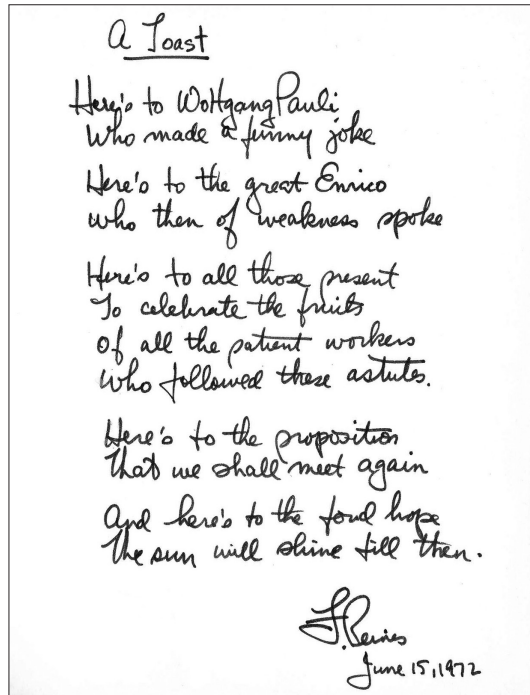 A Toast
Here's to Wolfgang Pauli
Who made a funny joke
Here's to the great Enrico
who then of weakness spoke
Here's to all those present
To celebrate the fruits
Of all the patient workers
who followed these astutes.
Here's to the proposition
That we shall meet again
And here's to the fond hope
The sun will shine till then.
F. Reines
June 15, 1972